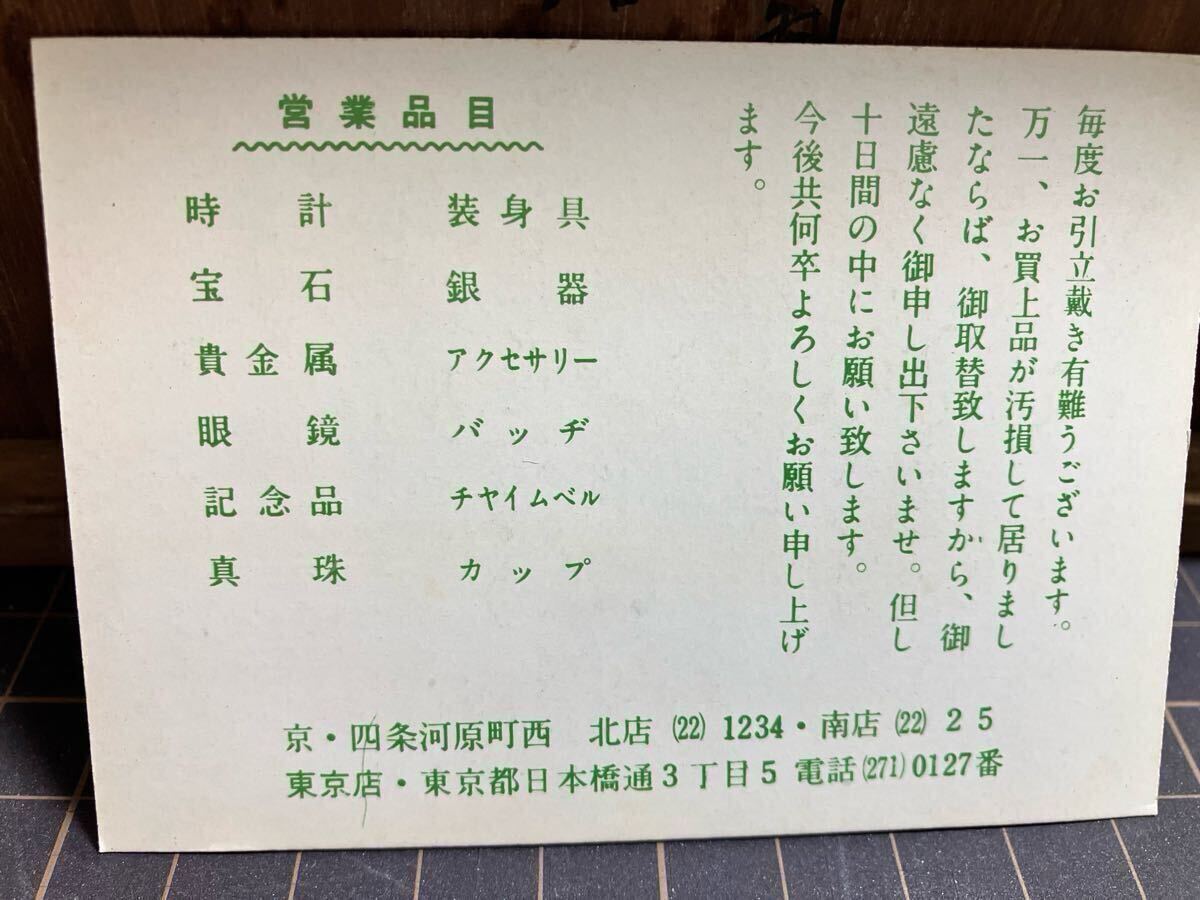 毎度お引立戴き有難うございます。
万一、お買上品が汚損して居りまし
たならば、御取替致しますから、御
遠慮なく御申し出下さいませ。但し
十日間の中にお願い致します。
今後共何卒よろしくお願い申し上げ
ます。
営業品目
時計 装身具
宝石 銀器
貴金属 アクセサリー
眼鏡 バッヂ
記念品 チヤイムベル
真珠 カップ
京・四条河原町西 北店 (22) 1234・南店 (22) 25
東京店・東京都日本橋通3丁目5 電話(271)0127番